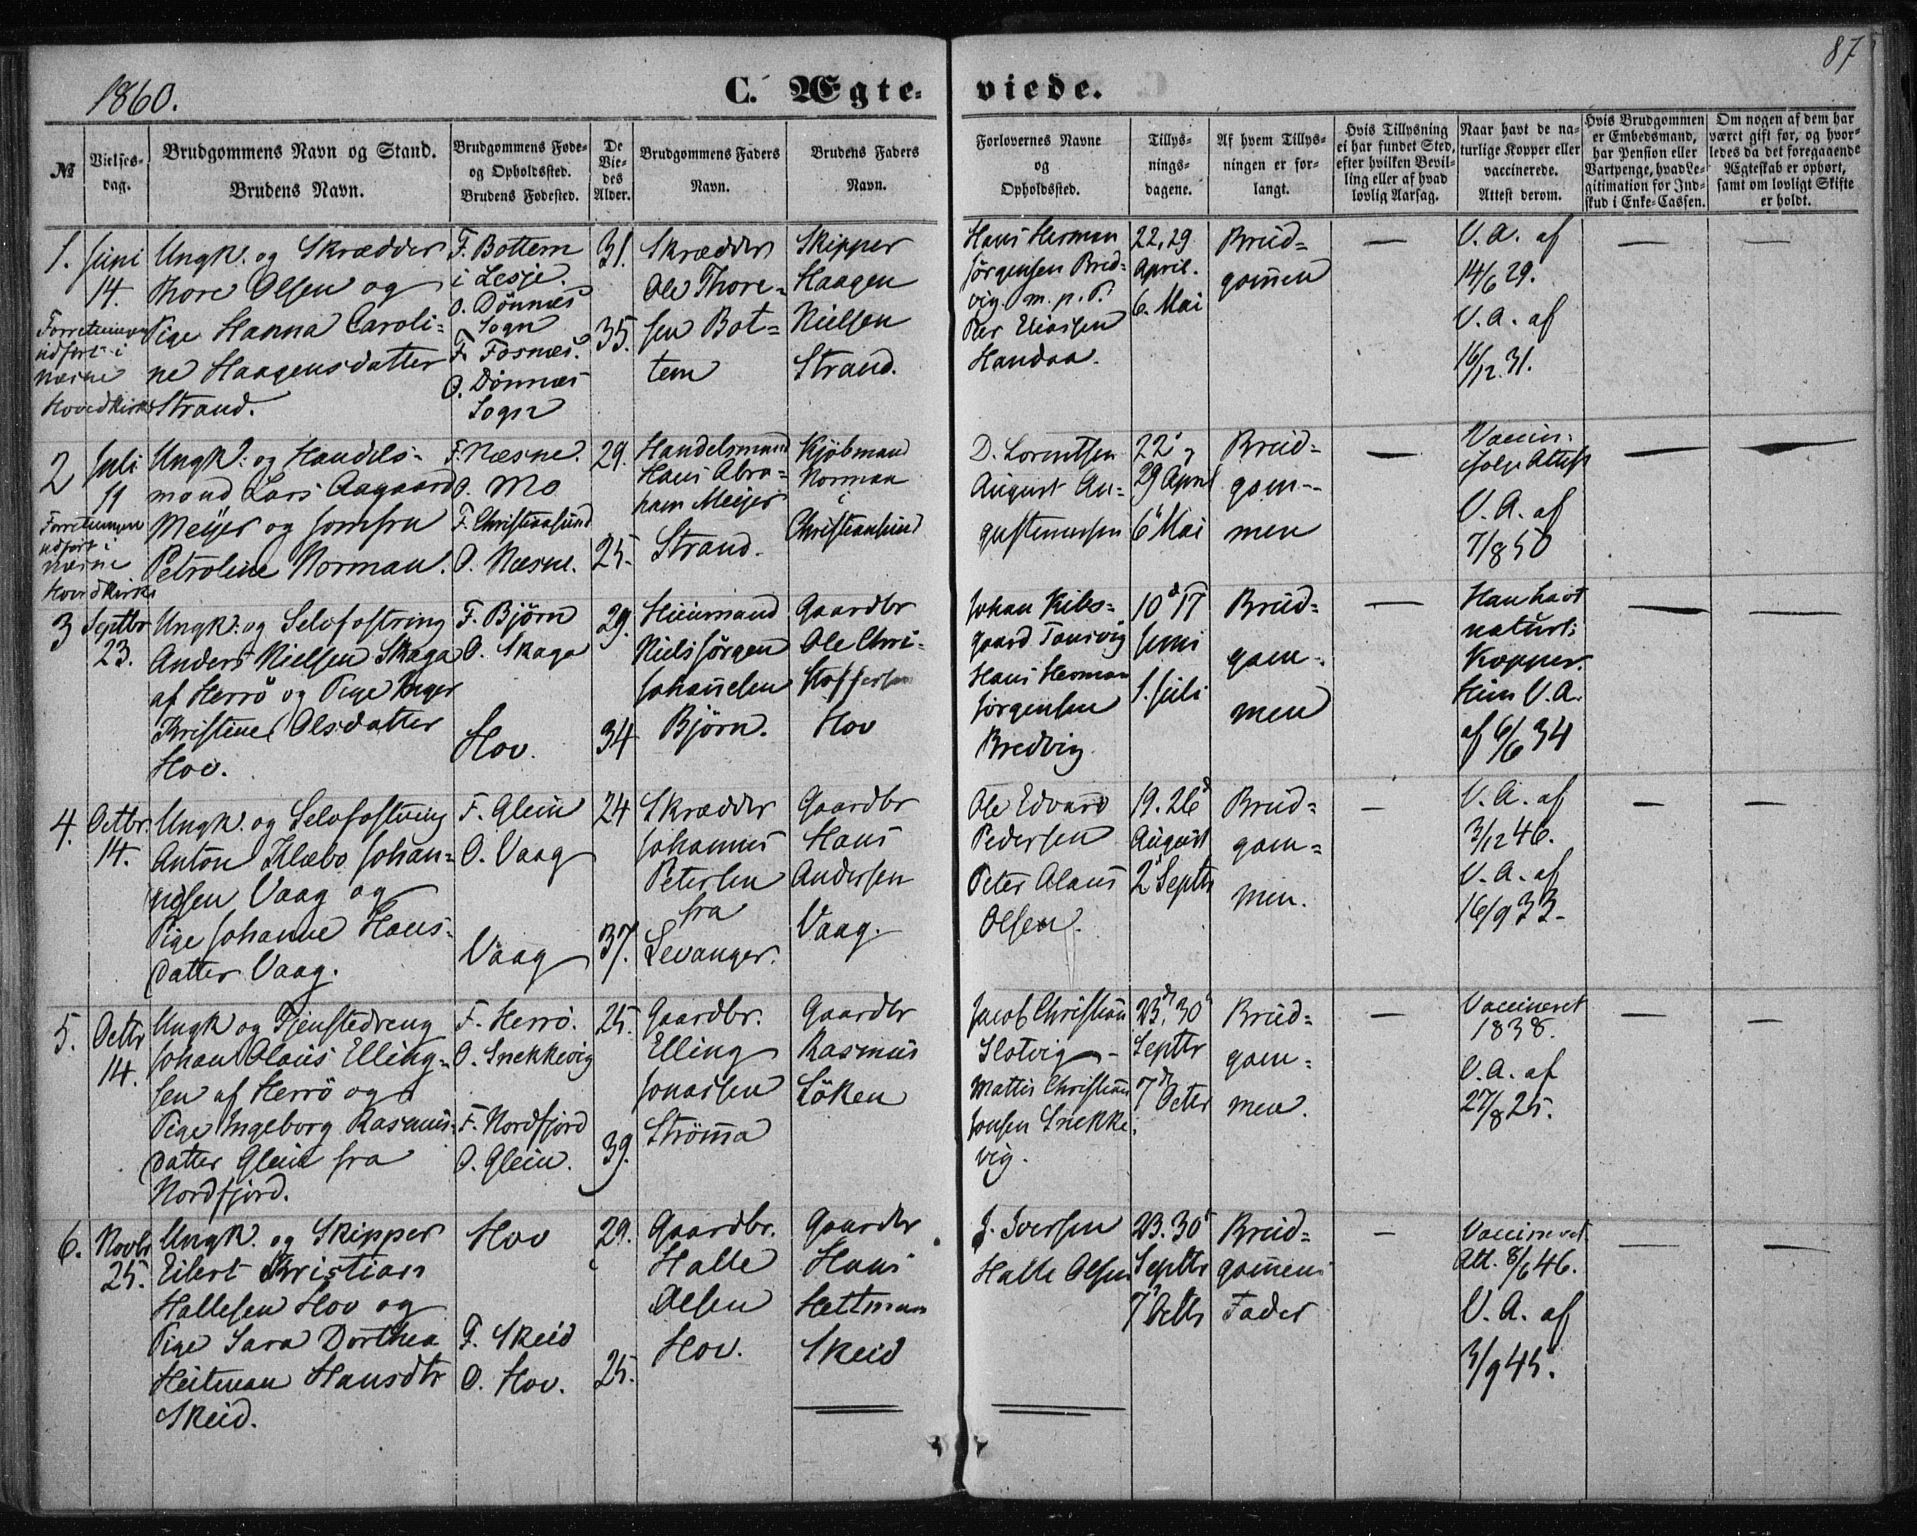 1860.
C. Ægte-
viede.
87
№
Vielses-
dag.
Brudgommens Navn og Stand.
Brudens Navn.
Brudgommens Føde-
og Opholdssted.
Brudens Fødested.
De
Vie-
des
Alder.
Brudgommens Faders
Navn.
Brudens Faders
Navn.
Forlovernes Navne
og
Opholdssted.
Tillys-
nings-
dagene.
Af hvem Tillys-
ningen er for-
langt.
Hvis Tillysning
ei har fundet Sted,
efter hvilken Bevil-
ling eller af hvad
lovlig Aarsag.
Naar havt de na-
turlige Kopper eller
vaccinerede.
Attest derom.
Hvis Brudgommen
er Embedsmand,
har Pension eller
Vartpenge, hvad Le-
gitimation for Ind-
skud i Enke-Cassen.
Om nogen af dem har
været gift før, og hvor-
ledes da det foregaaende
Ægteskab er ophørt,
samt om lovligt Skifte
er holdt.
1.
Juni
14.
Forretningen
udført i
Næsne
Hovedkirke
Ungk. og Skrædder
Thore Olsen og
Pige Hanna Caroli-
ne Haagensdatter
Strand.
F. Bottem
i Lesje.
O. Dønnæs
Sogn
F. Fosnæs.
O. Dønnæs
Sogn
31.
35.
Skrædder
Ole Thore-
sen Bot-
tem
Skipper
Haagen
Nielsen
Strand.
Hans Herman
Jørgensen Bred-
vig m. p. P.
Per Eliassen
Handaa.
22, 29
April.
6. Mai
Brud-
gommen
—
V. A. af
14/6 29.
V. A. af
16/12 31.
—
—
2
Juli
11
Forretningen
udført i
Næsne
Hovedkirke
Ungk. og Handels-
mand Lars Aagaard
Meijer og Jomfru
Petroline Norman.
F. Næsne.
O. Mo
F. Christiansund
O. Næsne.
29.
25.
Handelsmand
Hans Abra-
ham Meijer
Strand.
Kjøbmand
Norman
i
Christiansund
D. Lorentsen
August Au-
gustinussen
22 og
29 April
6 Mai
Brud-
gom-
men
—
Vaccin.
ifølge Attest
V. A. af
7/8 50
—
—
3
Septbr
23.
Ungk. og Selvfostring
Anders Nielsen Skaga
af Herrø og Pige Inger
Kristine Olsdatter
Hov.
F. Bjørn
O. Skaga
Hov.
29.
34
Huusmand
Niels Jørgen
Johannesen
Bjørn.
Gaardbr
Ole Chri-
stoffersen
Hov
Johan Kibs-
gaard Tonsvig
Hans Herman
Jørgensen
Bredvig.
10 & 17
Juni
1. Juli
Brud-
gom-
men
—
Han havt
naturl:
Kopper.
Hun V. A.
af 6/6 34
—
—
4.
Octbr.
14.
Ungk. og Selvfostring
Anton Klæbo Johan-
nesen Vaag og
Pige Johanne Hans-
datter Vaag.
F. Glein
O. Vaag
Vaag
24
37.
Skrædder
Johannes
Petersen
fra
Levanger.
Gaardbr
Hans
Andersen
Vaag.
Ole Edvard
Pedersen
Peter Olaus
Olsen.
19. 26
August
2 Septbr
Brud-
gom-
men.
—
V. A. af
3/12 46.
V. A. af
16/9 33.
—
—
5.
Octbr
14.
Ungk og Tjenstedreng
Johan Olaus Elling-
sen af Herrø og
Pige Ingeborg Rasmus-
datter Glein fra
Nordfjord.
F. Herrø.
O. Snekkevig
F. Nordfjord
O. Glein.
25.
39.
Gaardbr.
Elling
Jonassen
Strømma
Gaardbr
Rasmus
Løken
Jacob Christian
Slotvig -
Mattis Christian
Jonsen Snekke-
vig.
23, 30
Septbr
7 Octbr
Brud-
gom-
men.
—
Vaccineret
1838.
V. A. af
27/8 25.
—
—
6.
Novbr
25.
Ungk. og Skipper
Eilert Kristian
Hallesen Hov og
Pige Sara Dorthea
Heitman Hansdtr
Skeid.
Hov
F. Skeid
O. Hov.
29.
25.
Gaardbr.
Halle
Olsen
Hov.
Gaardbr
Hans
Heitman
Skeid
J. Iversen
Halle Olsen
23. 30
Septbr
7 Octbr
Brud-
gommens
Fader
—
Vaccineret
Att. 8/6 46.
V. A. af
3/9 45.
—
—